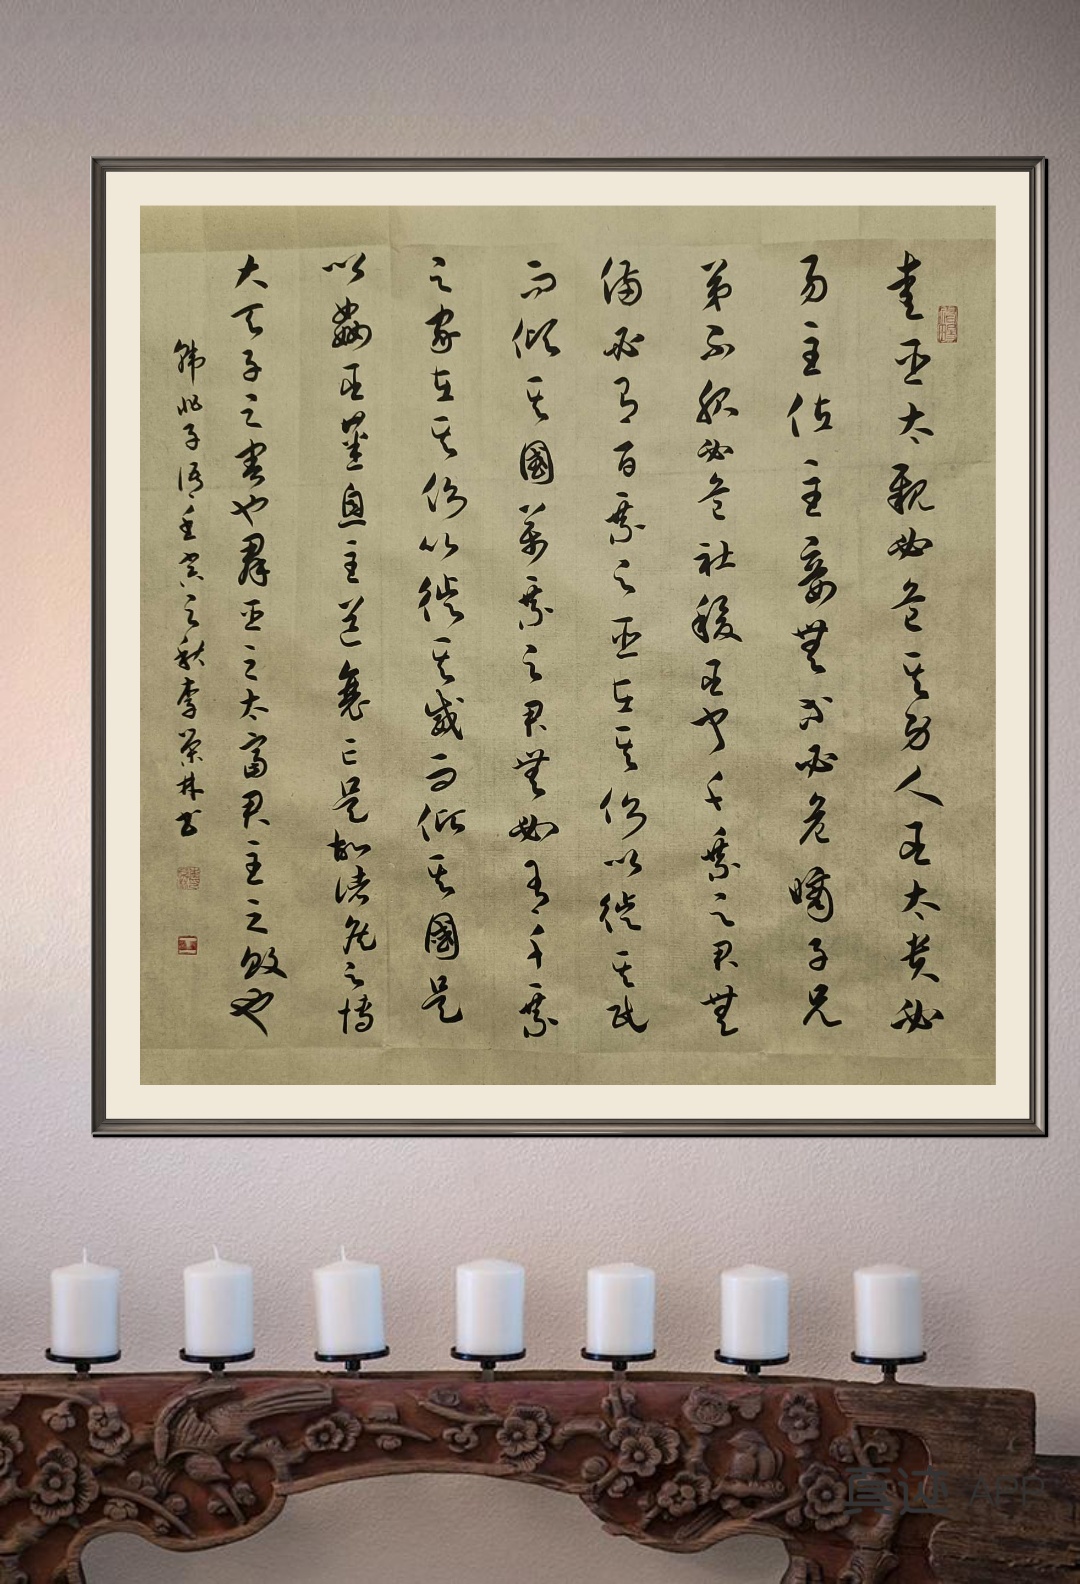 愛臣太親必危其身人臣太貴必
易主位主妾無等必危嫡子兄
弟不服必危社稷臣聞千乘之君無
備必有百乘之臣在其側以徙其民
而傾其國萬乘之君無必有千乘
之家在其側以徙其威而傾其國是
以姦臣蕃息主道衰亡是故諸侯之博
大天子之害也羣臣之太富君主之敗也
韓非子語壬寅之秋李榮林書
真迹 APP